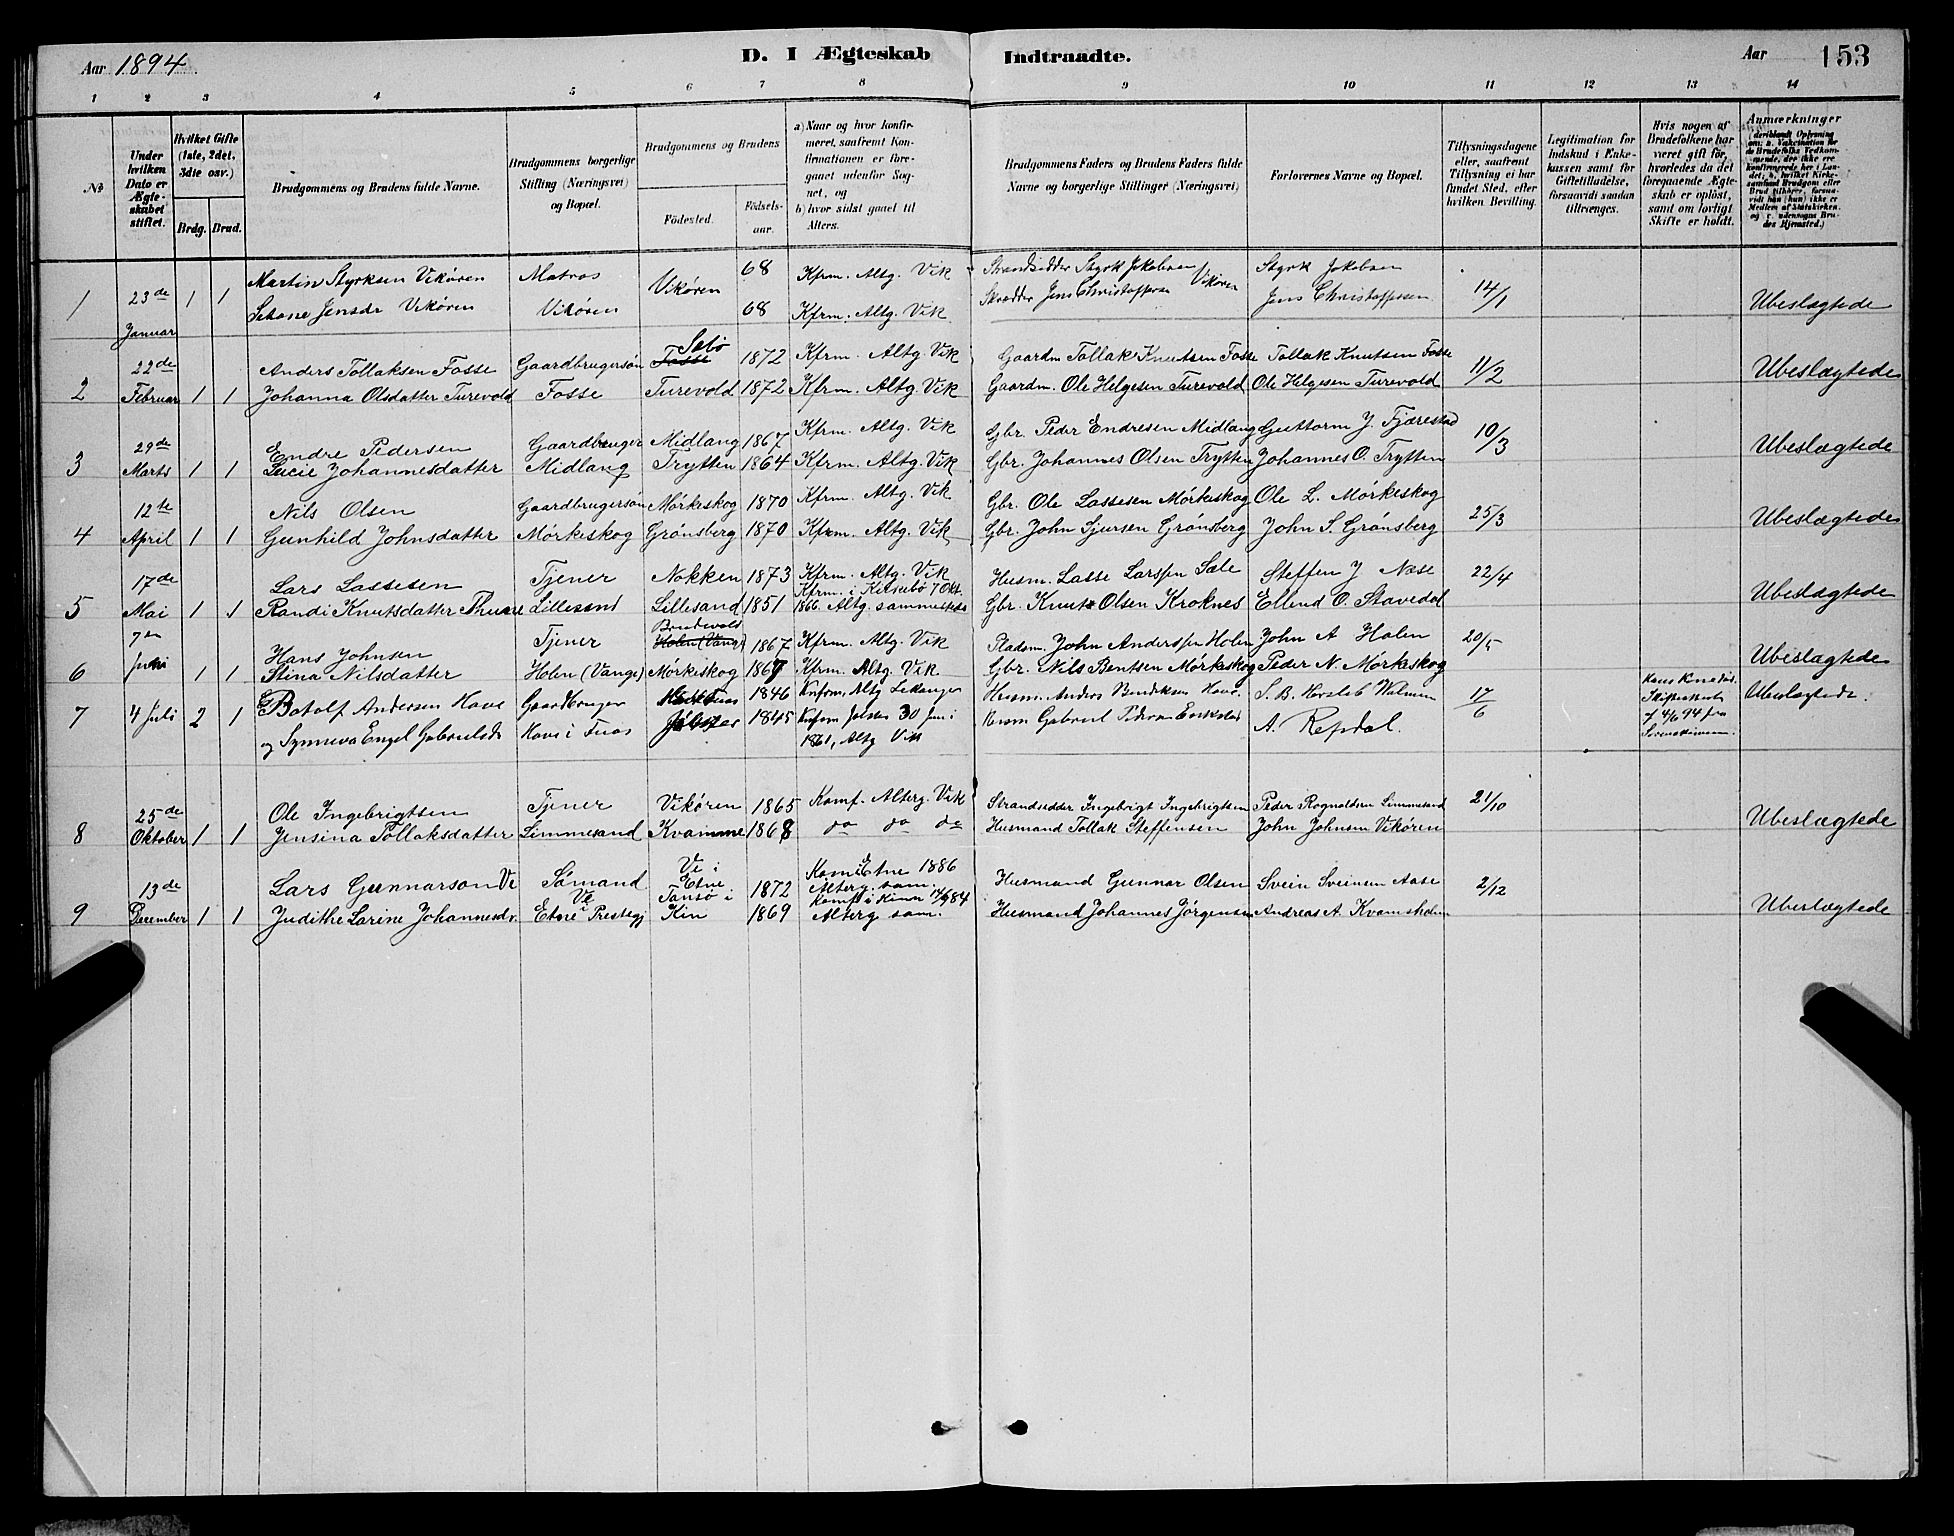 Aar 1894.
D. I Ægteskab Indtraadte.
Aar 153
1 2 3 4 5 6 7 8 9 10 11 12 13 14
No
Under hvilken Dato er Ægteskabet stiftet.
Hvilket Gifte (1ste, 2det, 3die osv.)
Brdg. Brud.
Brudgommens og Brudens fulde Navne.
Brudgommens borgerlige Stilling (Næringsvei) og Bopæl.
Brudgommens og Brudens
Fødested. Fødselsaar.
a) Naar og hvor konfirmeret, saafremt Konfirmationen er foregaaet udenfor Sognet, og
b) hvor sidst gaaet til Alters.
Brudgommens Faders og Brudens Faders fulde Navne og borgerlige Stillinger (Næringsvei)
Forlovernes Navne og Bopæl.
Tillysningsdagene eller, saafremt Tillysning ei har fundet Sted, efter hvilken Bevilling.
Legitimation for Indskud i Enkekassen samt for Giftetilladelse, forsaavidt saadan tiltrænges.
Hvis nogen af Brudefolkene har været gift før, hvorledes da det foregaaende Ægteskab er opløst, samt om lovligt Skifte er holdt.
Anmærkninger
1 23de Januar 1 1
Martin Styrksen Vikøren Matros Vikøren 68 Kfrm. Altg. Vik Strandsidder Styrk Jakobsen Vikøren Styrk Jakobsen 14/1
Jensdr Vikøren Vikøren 68 Kfrm. Altg. Vik Skrædder Jens Christoffersen Jens Christoffersen Ubeslægtede
2 22de Februar 1 1
Anders Tollaksen Fosse Gaardbrugersøn Fosse Sæbø 1872 Kfrm. Altg. Vik Gaardm Tollak Knutsen Fosse Tollak Knutsen Fosse 11/2
Johanna Olsdatter Turevold Fosse Turevold 1872 Kfrm. Altg. Vik Gaardm. Ole Helgesen Turevold Ole Helgesen Turevold Ubeslægtede
3 29de Marts 1 1
Endre Pedersen Gaardbruger Midlang 1867 Kfrm. Altg. Vik Gbr. Peder Endresen Midlang Guttorm J. Fjærestad 10/3
Lucie Johannesdatter Midlang Trytten 1864 Kfrm. Altg. Vik Gbr. Johannes Olsen Trytten Johannes O. Trytten Ubeslægtede
4 12te April 1 1
Nils Olsen Gaardbrugersøn Mørkeskog 1870 Kfrm. Altg. Vik Gbr. Ole Lassesen Mørkeskog Ole L. Mørkeskog 25/3
Gunhild Johnsdatter Mørkeskog Grønsberg 1870 Kfrm. Altg. Vik Gbr. John Sjursen Grønsberg John S. Grønsberg Ubeslægtede
5 17de Mai 1 1
Lars Lassesen Tjener Nokken 1873 Kfrm. Altg. Vik Husm. Lasse Larssen Sæle Steffen J Næse 22/4
Randi Knutsdatter Lillesand Lillesand 1851 Kfrm. i 7 Okt. 1866. Altg. sammesteds Gbr. Knut Olsen Kroknes Ellend O. Stavedal Ubeslægtede
6 7de Juni 1 1
Hans Johnsen Tjener Holen (Vangs) 1867 Kfrm. Altg. Vik Pladsm. John Anderssen Holen John A Holen 20/5
Stina Nilsdatter Holen (Vangs) Mørkeskog 1867 Kfrm. Altg. Vik Gbr. Nils Bentsen Mørkeskog Peder N. Mørkeskog Ubeslægtede
7 4 Juli 2 1
Botolf Andersen Hove Gaardbruger 1846 Konfirm. Altg Lekanger Husm. Anders Bendiksen Hove 17/6
og Synneva Engel Gabrielsdr Hove i 1845 Konfirm Jølster 30 Juni 1861, Altg Vik Husm Gabriel A. Refsdal. 4/6 94 Ubeslægtede.
8 25de Oktober 1 1
Ole Ingebrigtsen Tjener Vikøren 1865 Konf. Alterg. Vik Strandsidder Ingebrigt Ingebrigtsen Peder Rognaldsen Limmesand 21/10
Jensina Tollaksdatter Limmesand Kvamme 1868 do do do Husmand Tollak Steffensen John Johnsen Vikøren Ubeslægtede
9 13de December 1 1
Lars Gunnarson Ve Sømand Ve i Etne 1872 Konf i Etne 1886 Alterg. sam. Husmand Gunnar Olsen Svein Sveinsen Aase 2/12
Judithe Lorine Johannesdr. Ve i Etne Prestegj Tansø i Kin 1869 Konf i Kinn 14/9 84 Alterg sam. Husmand Johannes Jørgensen Andreas A. Kvamsholm Ubeslægtede